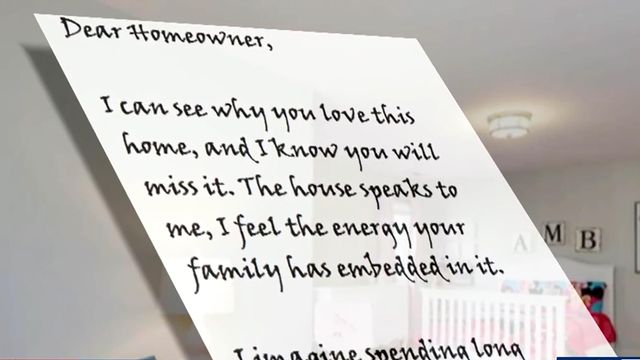 Dear Homeowner,
I can see why you love this
home, and I know you will
miss it. The house speaks to
me, I feel the energy your
family has embedded in it.
I imagine spending long
A M B